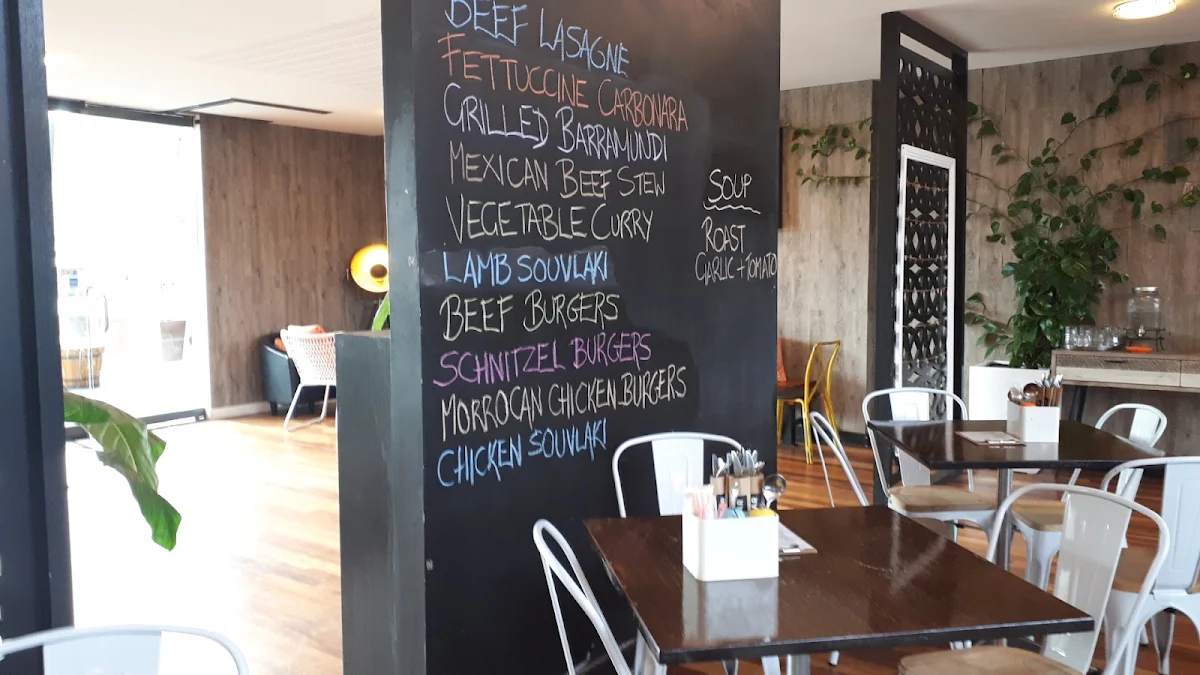 BEEF LASAGNE
FETTUCCINE CARBONARA
GRILLED BARRAMUNDI
MEXICAN BEEF STEW
VEGETABLE CURRY
LAMB SOUVLAKI
BEEF BURGERS
SCHNITZEL BURGERS
MORROCAN CHICKEN BURGERS
CHICKEN SOUVLAKI
SOUP
ROAST
GARLIC + TOMATO